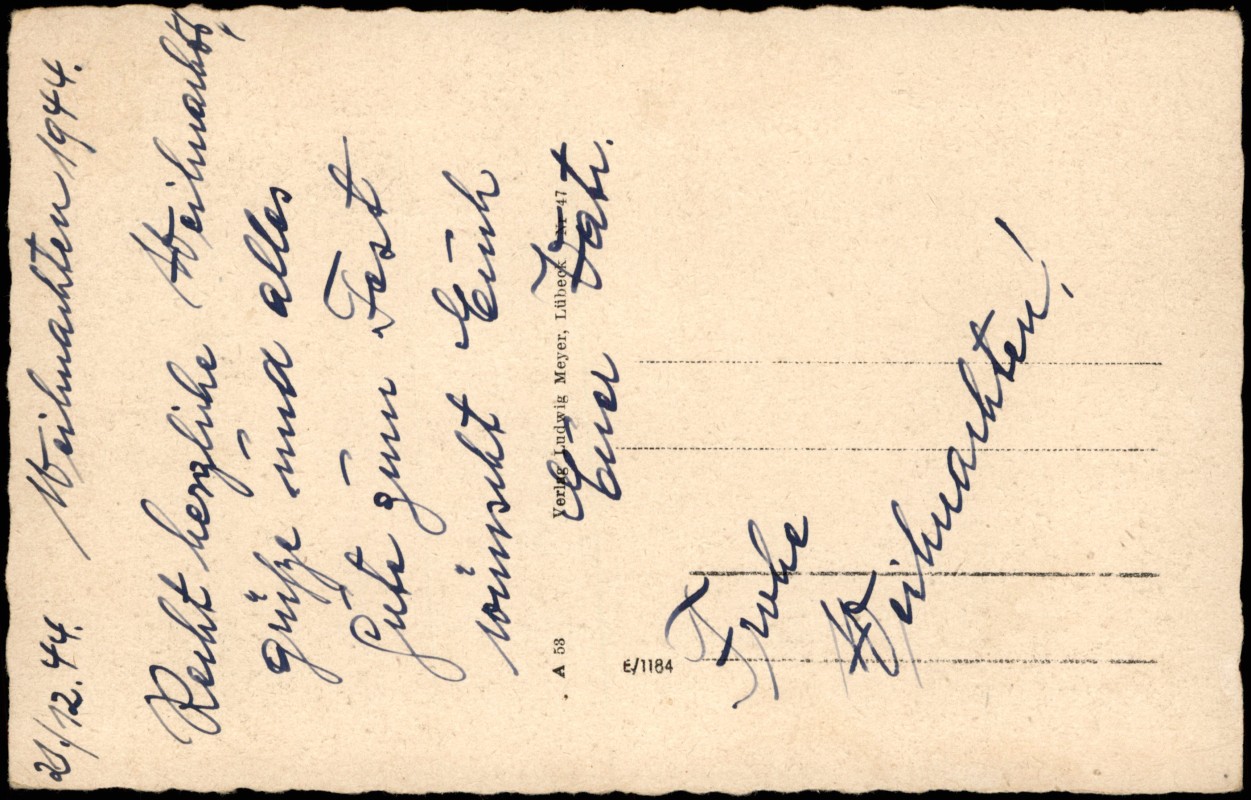 21/12. 44. Weihnachten 1944.
Recht herzliche Weihnachts,
grüße und alles
Gute zum Fest
wünscht Euch
Euer Vati.
A 53 Verlag Ludwig Meyer, Lübeck Nr 47
E/1184
Frohe
Weihnachten!